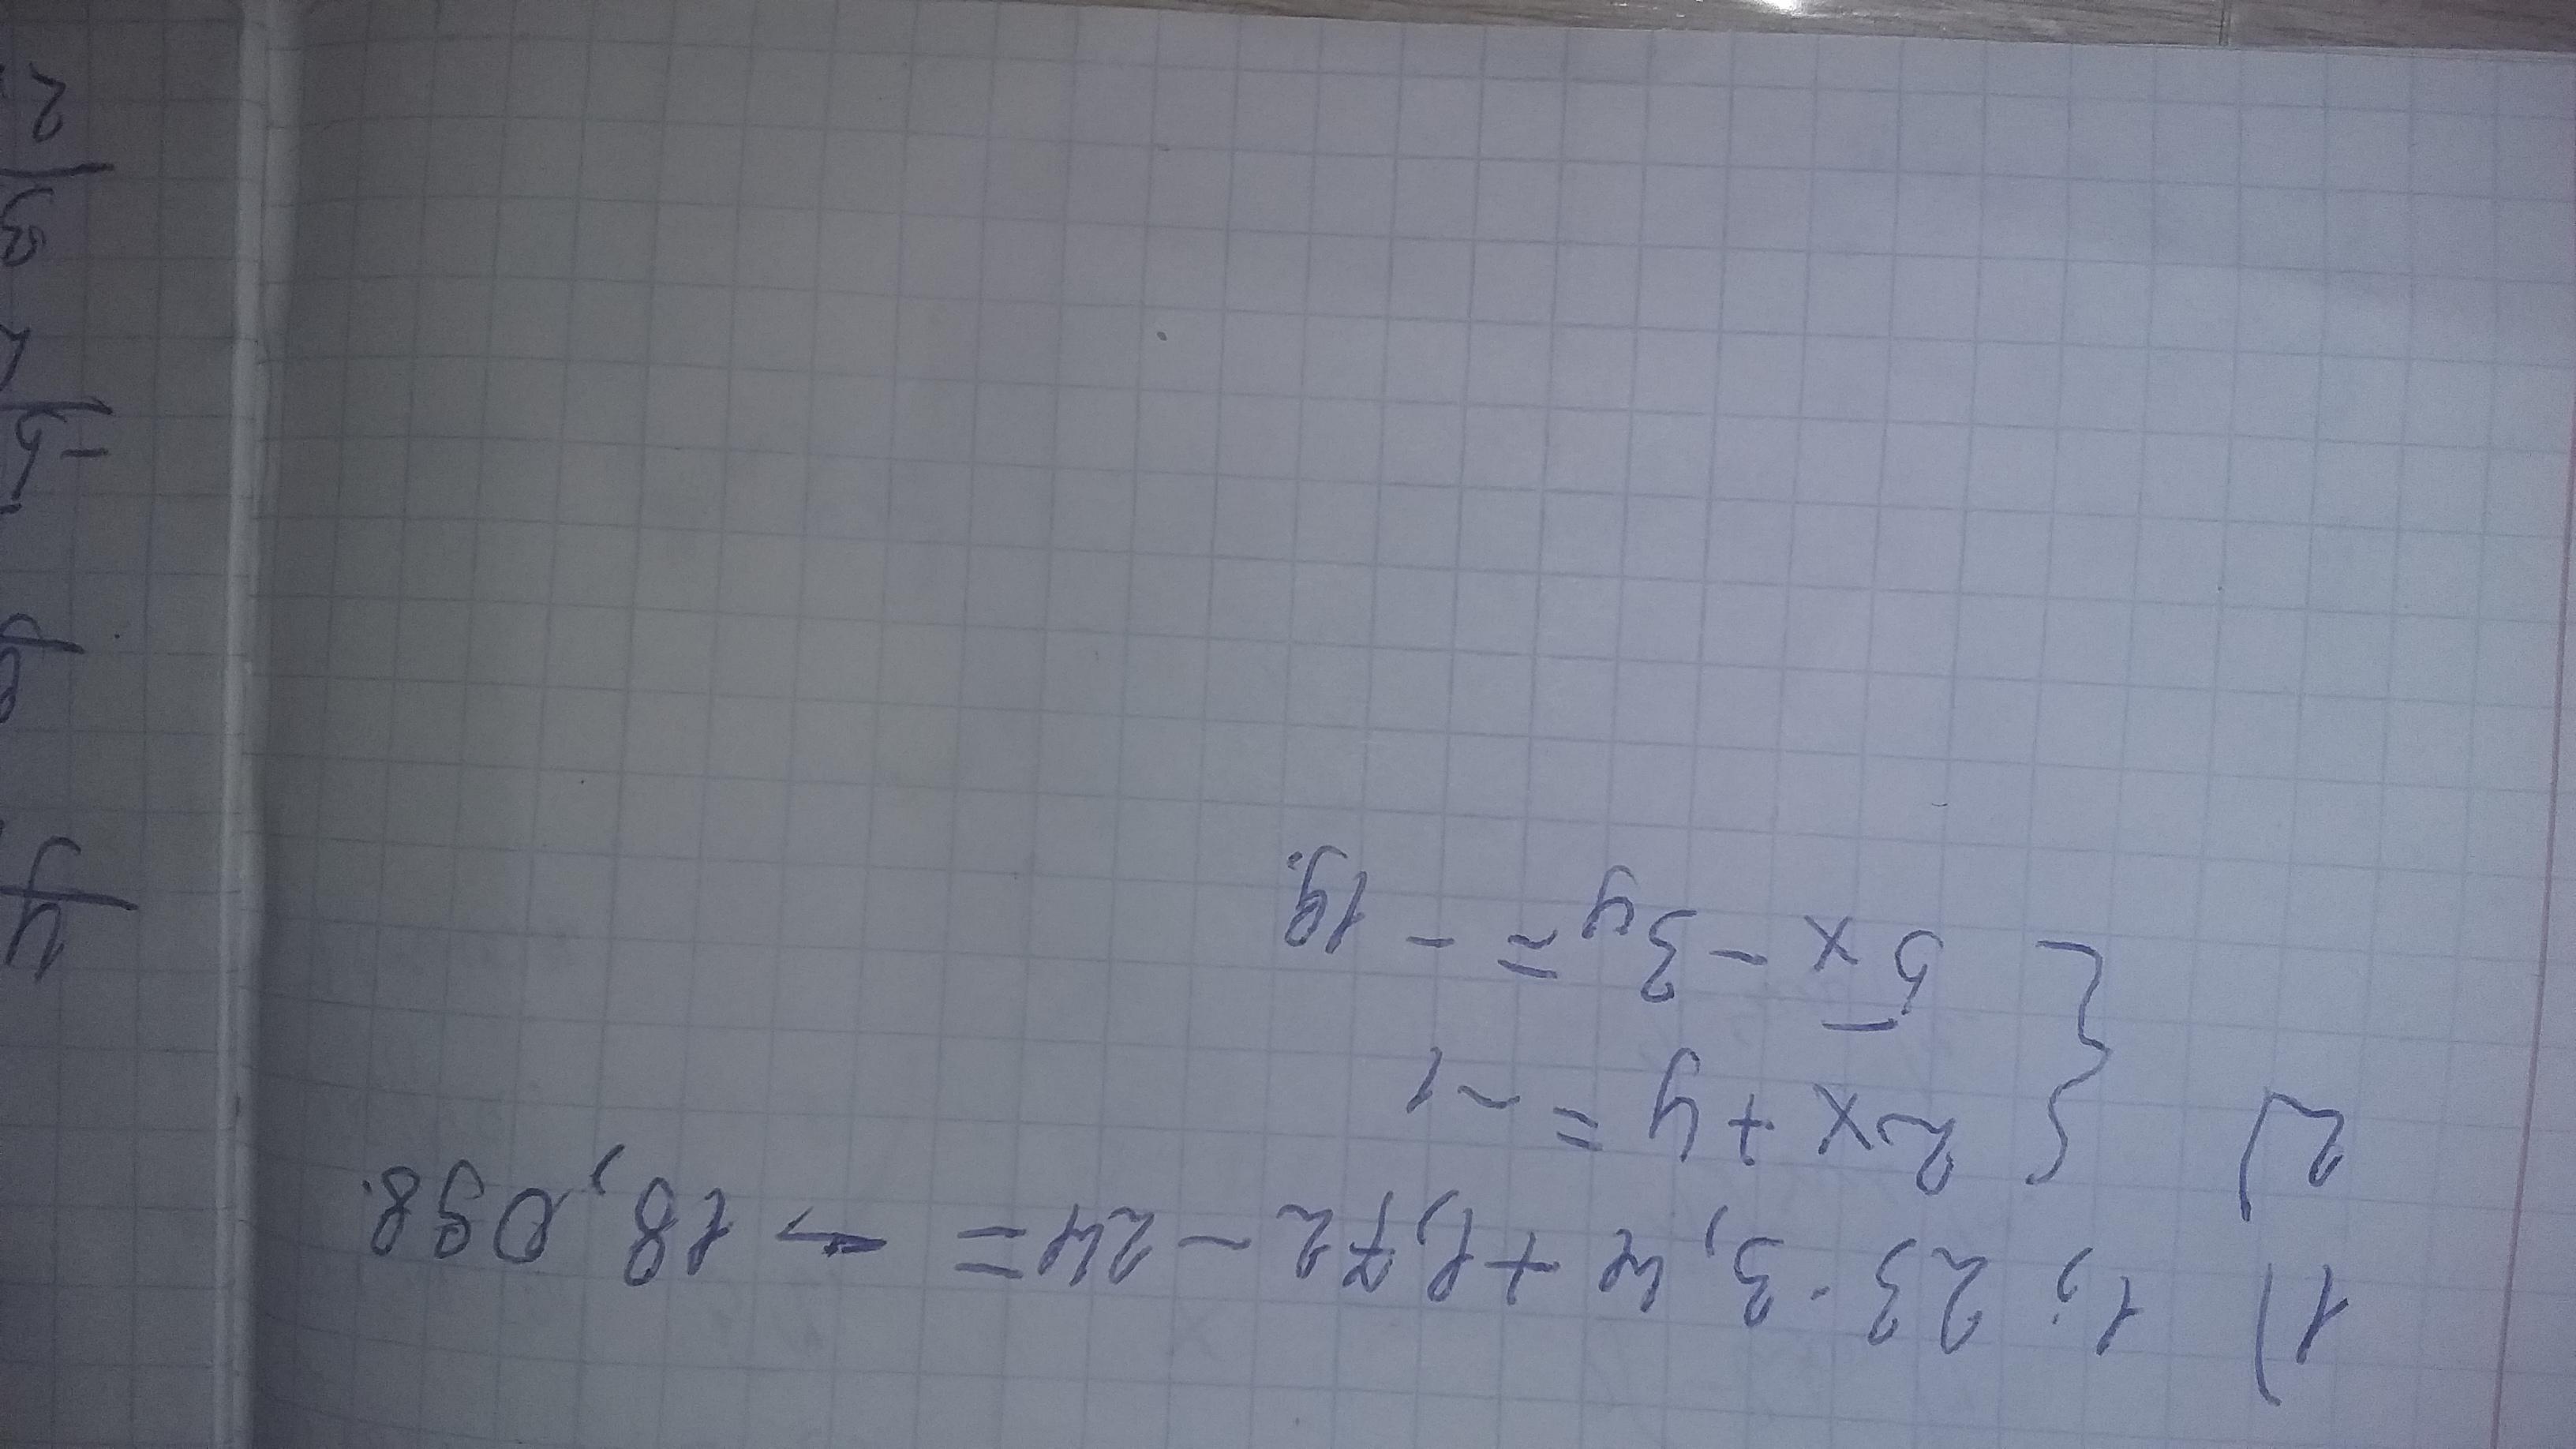 1) 1,23 · 3,4 + 1,72 - 24 = - 18,098.
2) { 2x + y = -1
5x - 3y = - 19.